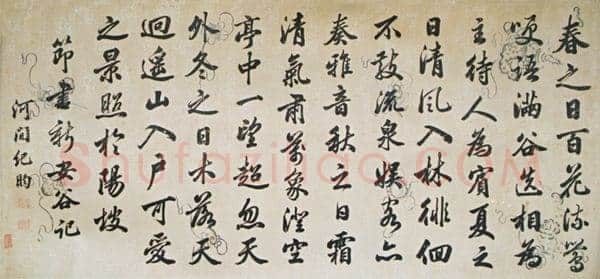 春之日百花流鶯
哽語滿谷迭相為
主待人為賓夏之
日清風入林徘徊
不散流泉娛客亦
奏雅音秋之日霜
清氣肅萬象澄空
亭中一望超忽天
外冬之日木落天
迥遙山入戶可愛
之景照於陽
節書新安谷記
河間紀昀